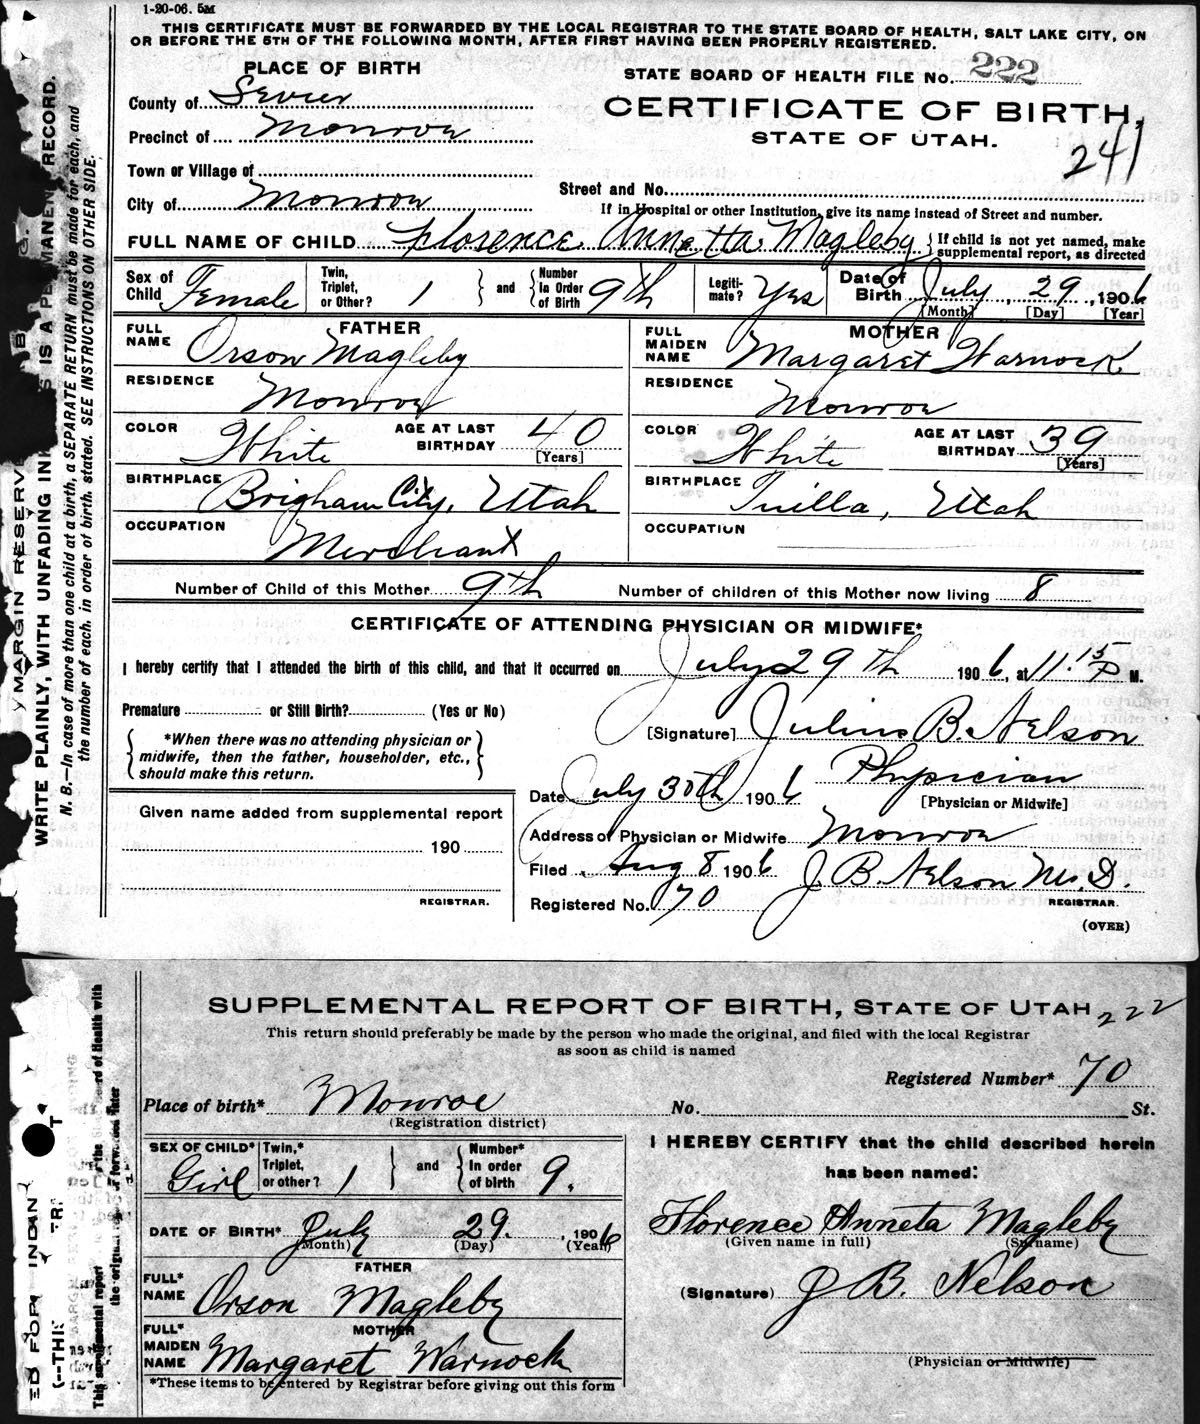 1-20-06. 5M
THIS CERTIFICATE MUST BE FORWARDED BY THE LOCAL REGISTRAR TO THE STATE BOARD OF HEALTH, SALT LAKE CITY, ON
OR BEFORE THE 5TH OF THE FOLLOWING MONTH, AFTER FIRST HAVING BEEN PROPERLY REGISTERED.
PLACE OF BIRTH
STATE BOARD OF HEALTH FILE NO. 222
County of Sevier
CERTIFICATE OF BIRTH,
Precinct of Monroe
STATE OF UTAH.
241
Town or Village of
Street and No.
City of Monroe
If in Hospital or other Institution, give its name instead of Street and number.
FULL NAME OF CHILD Florence Annetta Magleby { If child is not yet named, make supplemental report, as directed
Sex of Child Female Twin, Triplet, or Other? 1 } and { Number In Order of Birth 9th Legiti-mate? Yes Date of Birth July, 29, 1906
[Month] [Day] [Year]
FATHER
FULL NAME Orson Magleby
RESIDENCE Monroe
COLOR White AGE AT LAST BIRTHDAY 40 [Years]
BIRTHPLACE Brigham City, Utah
OCCUPATION Merchant
MOTHER
FULL MAIDEN NAME Margaret Warnock
RESIDENCE Monroe
COLOR White AGE AT LAST BIRTHDAY 39 [Years]
BIRTHPLACE Tuilla, Utah
OCCUPATION
Number of Child of this Mother 9th Number of children of this Mother now living 8
CERTIFICATE OF ATTENDING PHYSICIAN OR MIDWIFE*
I hereby certify that I attended the birth of this child, and that it occurred on July 29th 1906, at 11.15 P M.
Premature or Still Birth? (Yes or No)
{ *When there was no attending physician or
midwife, then the father, householder, etc.,
should make this return. }
[Signature] Julius B. Nelson
Date July 30th 1906 Physician
[Physician or Midwife]
Given name added from supplemental report
190
REGISTRAR.
Address of Physician or Midwife Monroe
Filed Aug 8 1906 J. B. Nelson M.D.
Registered No. 70 REGISTRAR.
(OVER)
WRITE PLAINLY, WITH UNFADING INK IS A PERMANENT RECORD.
N. B.—In case of more than one child at a birth, a SEPARATE RETURN must be made for each, and
the number of each, in order of birth, stated. SEE INSTRUCTIONS ON OTHER SIDE.
SUPPLEMENTAL REPORT OF BIRTH, STATE OF UTAH 222
This return should preferably be made by the person who made the original, and filed with the local Registrar
as soon as child is named
Registered Number* 70
Place of birth* Monroe No. St.
(Registration district)
SEX OF CHILD* Girl Twin,* Triplet, or other? 1 } and { Number* In order of birth 9.
DATE OF BIRTH* July 29. , 1906
(Month) (Day) (Year)
FATHER
FULL* NAME Orson Magleby
MOTHER
FULL* MAIDEN NAME Margaret Warnock
*These items to be entered by Registrar before giving out this form
I HEREBY CERTIFY that the child described herein
has been named:
Florence Anneta Magleby
(Given name in full) (Surname)
(Signature) J B. Nelson
(Physician or Midwife)